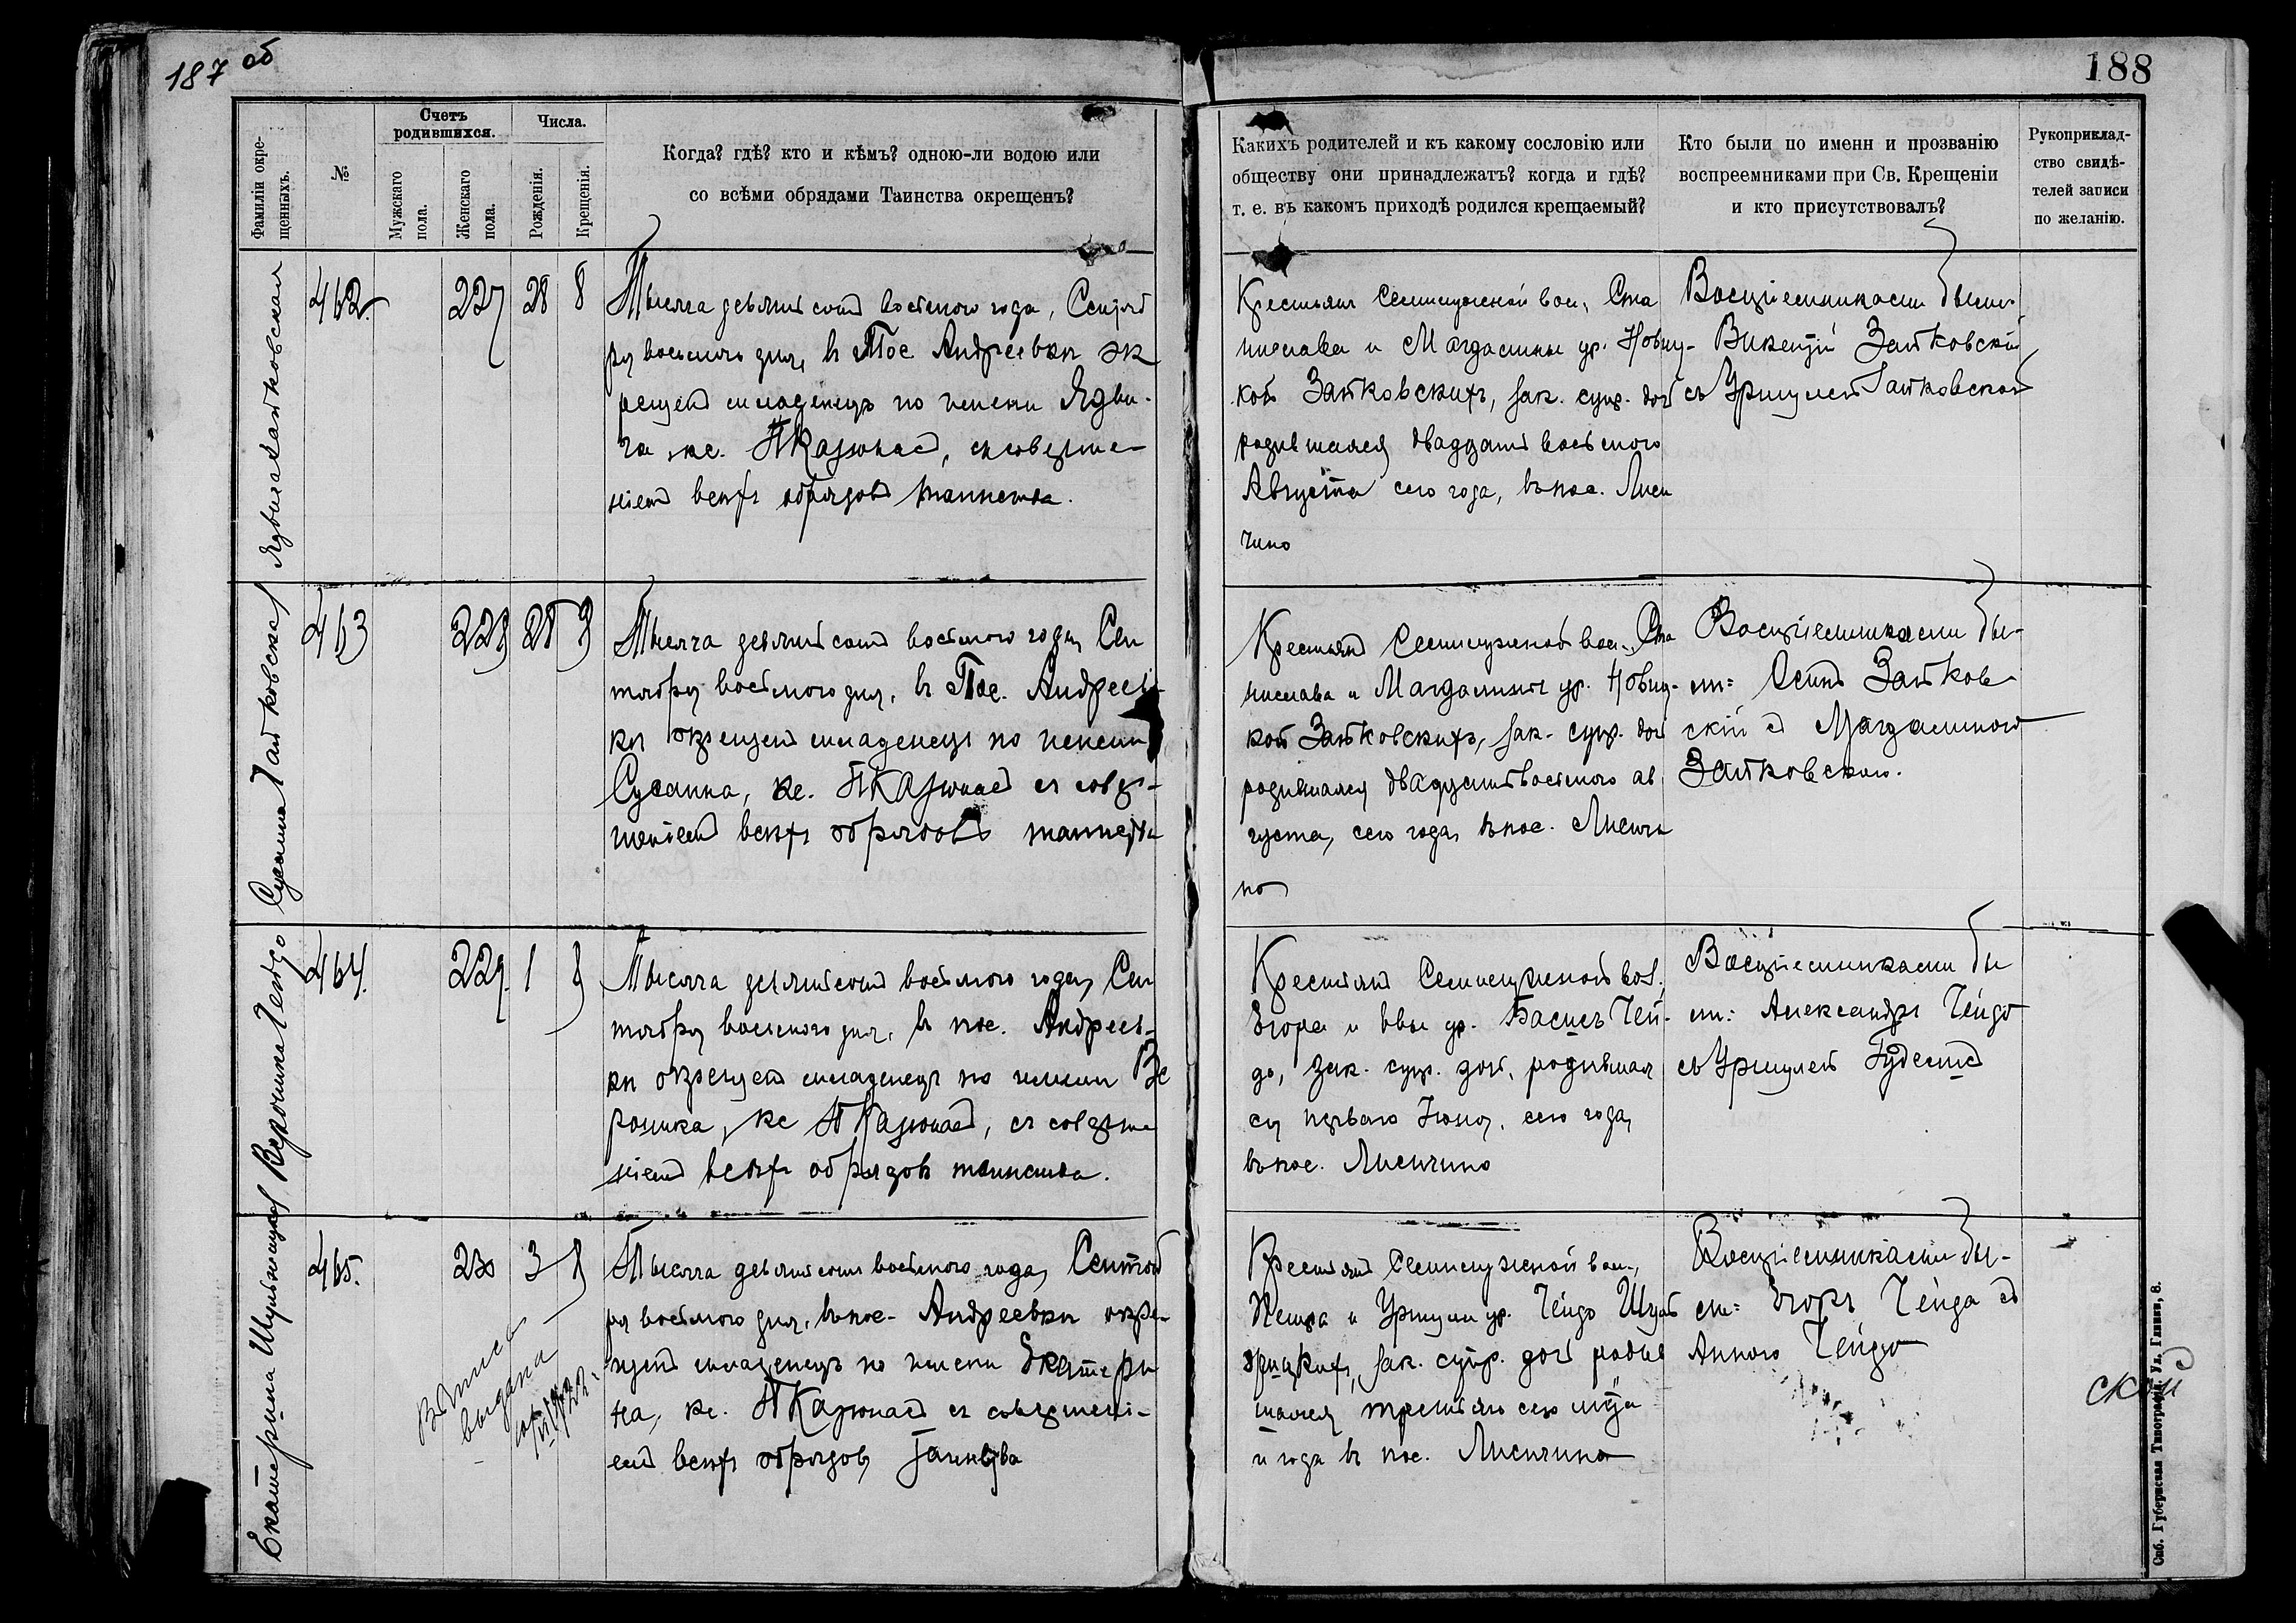 187 об
188
Фамиліи окре-
щенныхъ.
№
Счетъ
родившихся.
Мужскаго
пола.
Женскаго
пола.
Числа.
Рожденія.
Крещенія.
Когда? гдѣ? кто и кѣмъ? одною-ли водою или
со всѣми обрядами Таинства окрещенъ?
Какихъ родителей и къ какому сословію или
обществу они принадлежатъ? когда и гдѣ?
т. е. въ какомъ приходѣ родился крещаемый?
Кто были по имени и прозванію
воспреемниками при Св. Крещеніи
и кто присутствовалъ?
Рукоприклад-
ство свидѣ-
телей записи
по желанію.
Ядвига Затковская
462.
227
28
8
Тысяча девятьсотъ восьмого года, Сентяб
ря восьмого дня, въ Пос. Андреевкѣ ок
рещенъ младенецъ по имени Ядви-
га, кс. съ соверше-
ніемъ всѣхъ обрядовъ таинства.
Крестьянъ вол., Ста
нислава и Магдалины ур. Новиц-
кой Затковскихъ, зак. супр. дочь
родившаяся двадцать восьмого
Августа сего года, въ пос. Лиси
чино
Воспріемниками были
Викентій Затковскій
съ Уршулей Затковской
Сузанна Затковская
463
228
28
8
Тысяча девятьсотъ восьмого года, Сен
тября восьмого дня, въ Пос. Андреев-
кѣ окрещенъ младенецъ по имени
Сузанна, кс. съ совер-
шеніемъ всѣхъ обрядовъ таинства
Крестьянъ вол., Ста
нислава и Магдалины ур. Новиц-
кой Затковскихъ, зак. супр. дочь
родившаяся двадцать восьмого ав
густа, сего года, въ пос. Лисичи
но
Воспріемниками бы-
ли: Осипъ Затков
скій съ Магдаленою
Затковскою.
Вероника Чейдо
464.
229.
1
8
Тысяча девятьсотъ восьмого года, Сен
тября восьмого дня, въ пос. Андреев-
кѣ окрещенъ младенецъ по имени Ве
роника, кс. съ соверше
ніемъ всѣхъ обрядовъ таинства.
Крестьянъ вол.,
Егора и Евы ур. Чей-
до, зак. супр. дочь, родившая
ся перваго сего года,
въ пос. Лисичино
Воспріемниками бы
ли: Александръ Чейдо
съ Уршулей
Екатерина
465.
230
3
8
Тысяча девятьсотъ восьмого года, Сентяб
ря восьмого дня, въ пос. Андреевкѣ окре-
щенъ младенецъ по имени Екатери
на, кс. съ совершені-
емъ всѣхъ обрядовъ таинства
выдана
Крестьянъ вол.,
Петра и Уршули ур. Чейдо
зак. супр. дочь родив
шаяся третьяго сего м-ца
и года въ пос. Лисичино
Воспріемниками бы-
ли: Егоръ Чейдо съ
Анною Чейдо
Спб. Губернская Типографія. Ул. Глинки, 8.